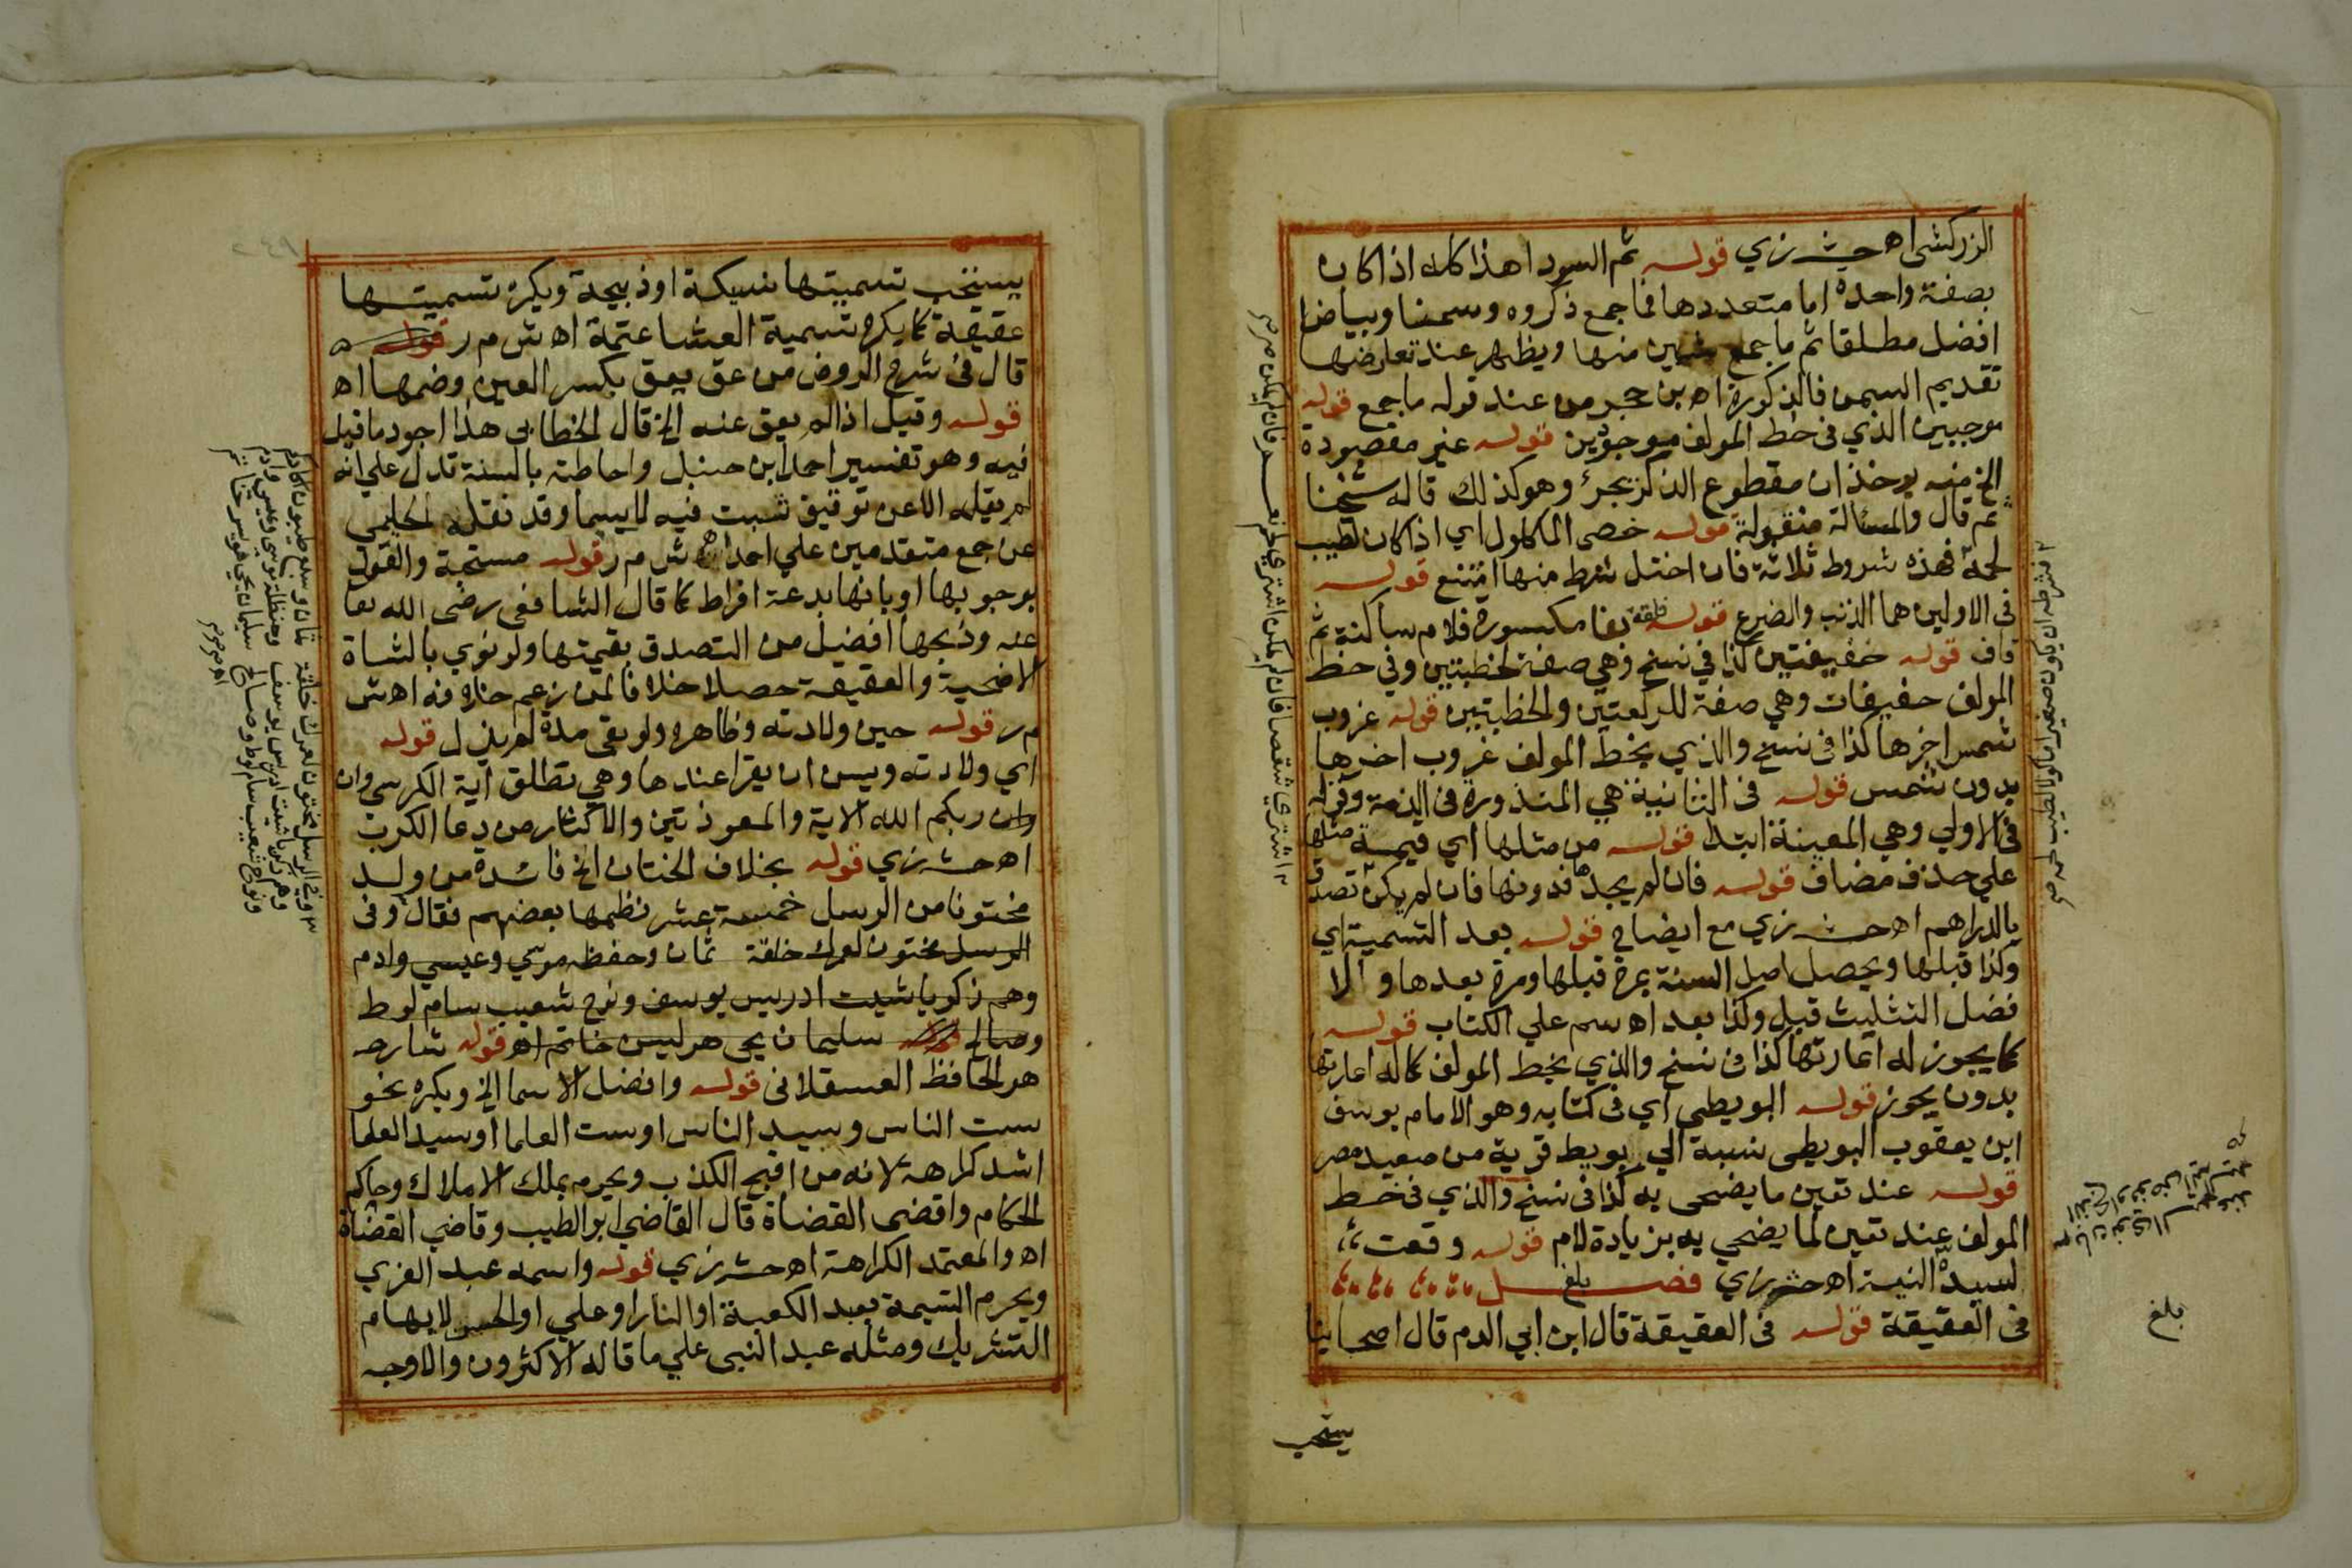 الزركشي اه حش زي قوله ثم السود اهذا كله اذا كان
بصفة واحدة اما متعددها فما جمع ذكروه وسمنا وبياضا
افضل مطلقا ثم ما جمع منها ويظهر عند تعارضها
تقديم السمن فالذكورة اه بن حجر من عند قوله ما جمع قوله
موجبين الذي في خط المولف موجوئين قوله غير مقصودة
الخ منه يوخذ ان مقطوع الذكر يجزئ وهو كذلك قاله شيخنا
ثم قال والمسالة منقولة قوله خصي الماكول اي اذا كان لطيب
لحمه فهذه شروط ثلاثة فان اختل شرط منها امتنع قوله
في الاولين هما الذنب والضرع قوله فلقة بفا مكسورة فلام ساكنة ثم
قاف قوله خفيفتين كذا في نسخ وهي صفة لخطبتين وفي خط
المولف خفيفات وهي صفة للركعتين والخطبتين قوله غروب
شمس اخرها كذا في نسخ والذي بخط المولف غروب اخرها
بدون شمس قوله في الثانية هي المنذورة في الذمة وقوله
في الاولي وهي المعينة ابتدا قوله من مثلها اي قيمة مثلها
علي حذف مضاف قوله فان لم يجد فدونها فان لم يكن تصدق
بالدراهم اه حش زي مع ايضاح قوله بعد التسمية اي
وكذا قبلها ويحصل اصل السنة بمرة قبلها ومرة بعدها والا
فضل التثليث قبل وكذا بعد اه سم علي الكتاب قوله
كما يجوز له اعارتها كذا في نسخ والذي بخط المولف كما له اعارتها
بدون يجوز قوله البويطي اي في كتابه وهو الامام يوسف
ابن يعقوب البويطي نسبة الي بويط قرية من صعيد مصر
قوله عند تعين ما يضحي به كذا في نسخ والذي في خط
المولف عند تعين لما يضحي به بزيادة لام قوله وقعت
لسيده النية اه حش زي فصل بلغ
في العقيقة قوله في العقيقة قال ابن ابي الدم قال اصحابنا
بلغ
يستحب
يستحب تسميتها نسيكة او ذبيحة ويكره تسميتها
عقيقة كما يكره تسمية العشا عتمة اه ش م ر قوله
قال في شرح الروض من عق يعق بكسر العين وضمها اه
قوله وقيل اذا لم يعق عنه الخ قال الخطابي هذا اجود ما قيل
فيه وهو تفسير احمد ابن حنبل واحاطته بالسنة تدل علي انه
لم يقله الا عن توقيف ثبت فيه لا سيما وقد نقله الحليمي
عن جمع متقدمين علي احمد اه ش م ر قوله مستحبة والقول
بوجوبها او بانها بدعة افراط كما قال الشافعي رضي الله تعا
عنه وذبحها افضل من التصدق بقيمتها ولو نوي بالشاة
الاضحية والعقيقة حصلا خلافا لمن زعم خلافه اه ش
م ر قوله حين ولادته وظاهره ولو بقي مدة لم ينزل قوله
اي ولادته ويسن ان يقرا عندها وهي تطلق اية الكرسي وان
وان ربكم الله الاية والمعوذتين والاكثار من دعا الكرب
اه حش زي قوله بخلاف الختان الخ فائدة من ولد
مختونا من الرسل خمسة عشر نظمها بعضهم فقال وفي
الرسل مختون لعمرك خلقة ثمان وحفظه موسي وعيسي وادم
وهم زكريا شيت ادريس يوسف ونوح شعيب سام لوط
وصالح سليمان يحي هو ليس خاتم اه قوله شارحه
هو الحافظ العسقلاني قوله وافضل الاسما الخ ويكره نحو
ست الناس وسيد الناس او ست العلما او سيد العلما
اشد كراهة لانه من اقبح الكذب ويحرم بملك الاملاك وحاكم
الحكام واقضي القضاة قال القاضي ابو الطيب وقاضي القضاة
اه والمعتمد الكراهة اه حش زي قوله واسمه عبد العزي
ويحرم التسيمة بعبد الكعبة او النار او علي او الحسن لايهام
التشريك ومثله عبد النبي علي ما قاله الاكثرون والاوجه
وفي الرسل مختون لعمرك خلقة ثمان وسبع طيبون اكارم
وهم زكريا شيت ادريس يوسف وحنظلة موسي وعيسي وادم
ونوح شعيب سام لوط وصالح سليمان يحي هود يس خاتم